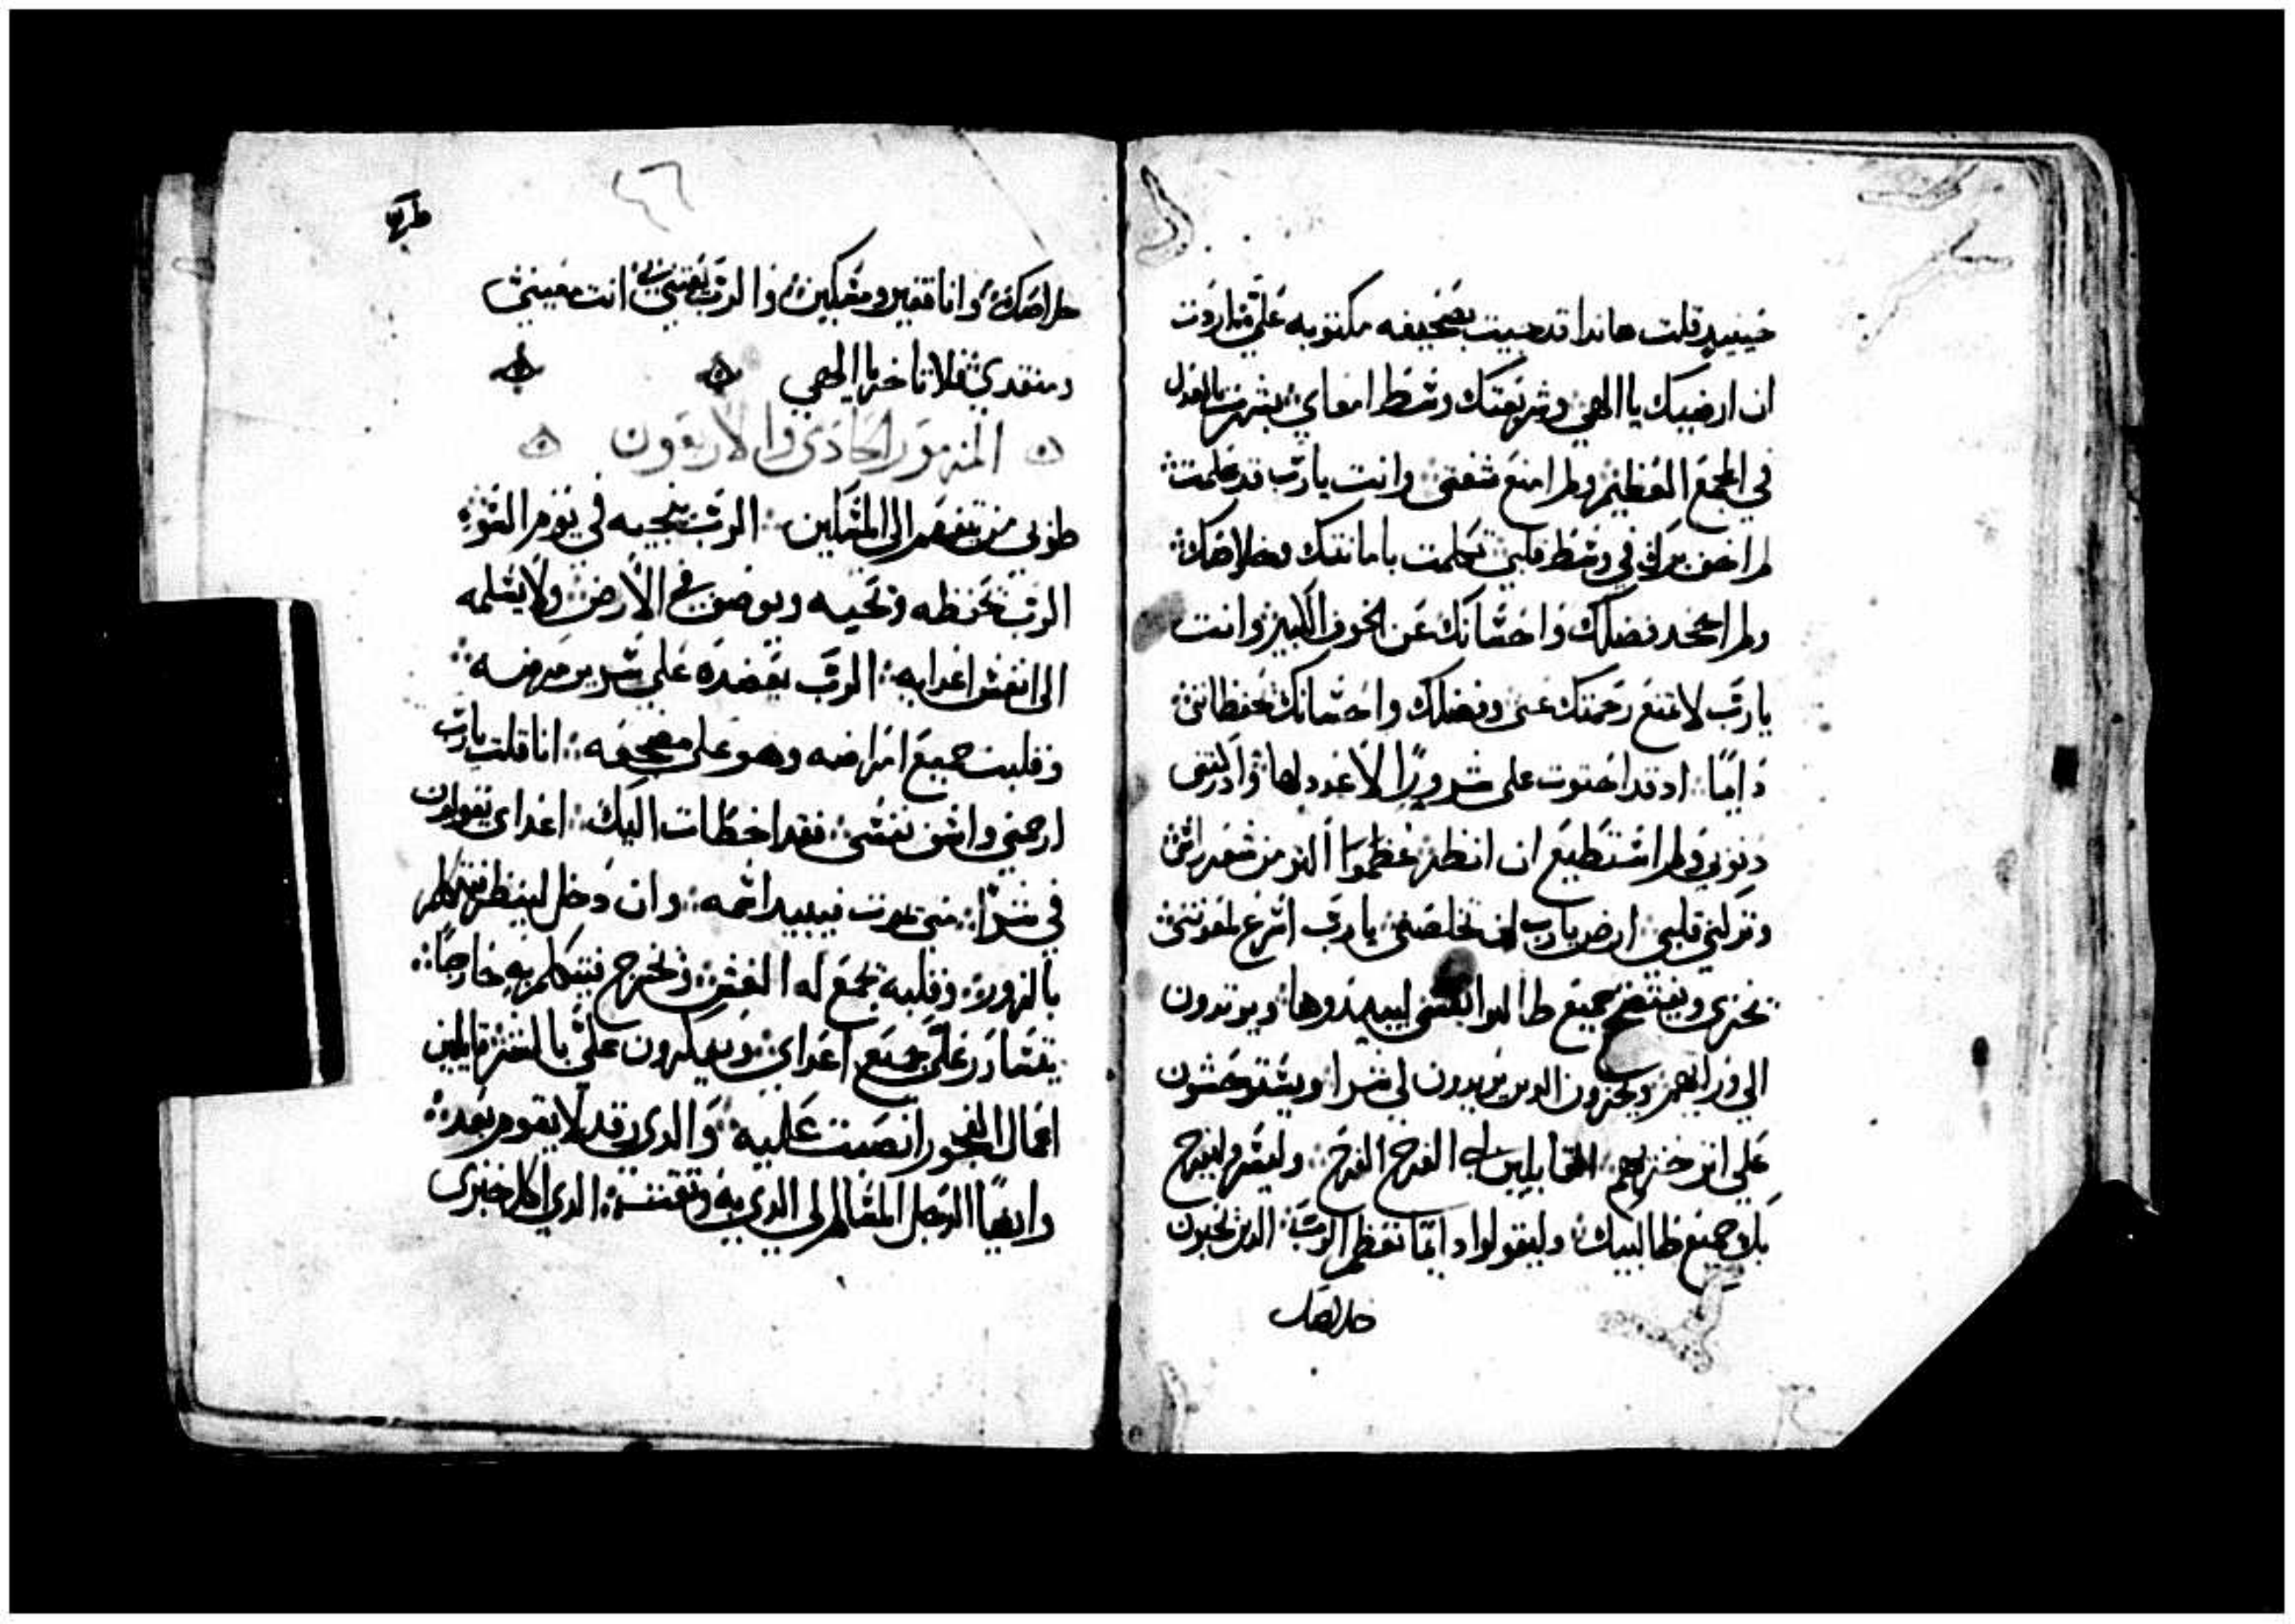 حينيد قلت هاندا قد جييت بصحيفه مكتوبه علي هاروت
ان ارضيك يا الهي وشريعتك وسط امعاي بشرت بالعدل
في المجمع العظيم ولم امنع شفتي وانت يارب قد علمت
لم اخف برك في وسط قلبي تكلمت بامانتك وخلاصك
ولم اجحد فضلك واحسانك عن الخوف الكبير وانت
يا رب لا تمنع رحمتك عني وفضلك واحسانك تحفظانني
دايمًا اد قد احتوت علي شرورًا لا عدد لها وادركتني
دنوبي ولم استطيع ان انظر عظموا اكتر من شعر راسي
وتركني قلبي ارض يارب ان تخلصني يارب اسرع لمعونتي
يخزي ويفتضح جميع طالبوا نفسي ليبيدوها ويرتدون
الي ورايهم ويخزون الدين يريدون لي شرا ويستوحشون
علي اتر خزيهم القايلين لي الفرح الفرح وليسر وليفرح
بك جميع طالبيك وليقولوا دايمًا تعظم الرب الدين يحبون
خلاصك
٤٦
خلاصك وانا فقير ومسكين والرب يعتني بي انت معيني
ومنقدي فلا تاخر يا الهي
المزمور الحادي والاربعون
طوبي من يتفهم الي المساكين الرب ينجيه في يوم السوء
الرب يحفظه ويحييه ويوضف في الارض ولا يسلمه
الي انفس اعدايه الرب يعضده علي سرير مرضه
وقلبت جميع امراضه وهو علي مضجعه انا قلت يارب
ارحمني واشف نفسي فقد اخطات اليك اعداي يقولون
في شرا متي يموت فيبيد اسمه وان دخل لينظر يتكلم
بالزور وقلبه يجمع له الغش ويخرج فيتكلم به خارجًا
يتشاور علي جميع اعداي ويفكرون علي بالشر قايلين
اعمال الفجور انصبت عليه والدي رقد لا يقوم بعد
وايضًا الرجل المسالم لي الدي به وتقت الدي اكل خبزي